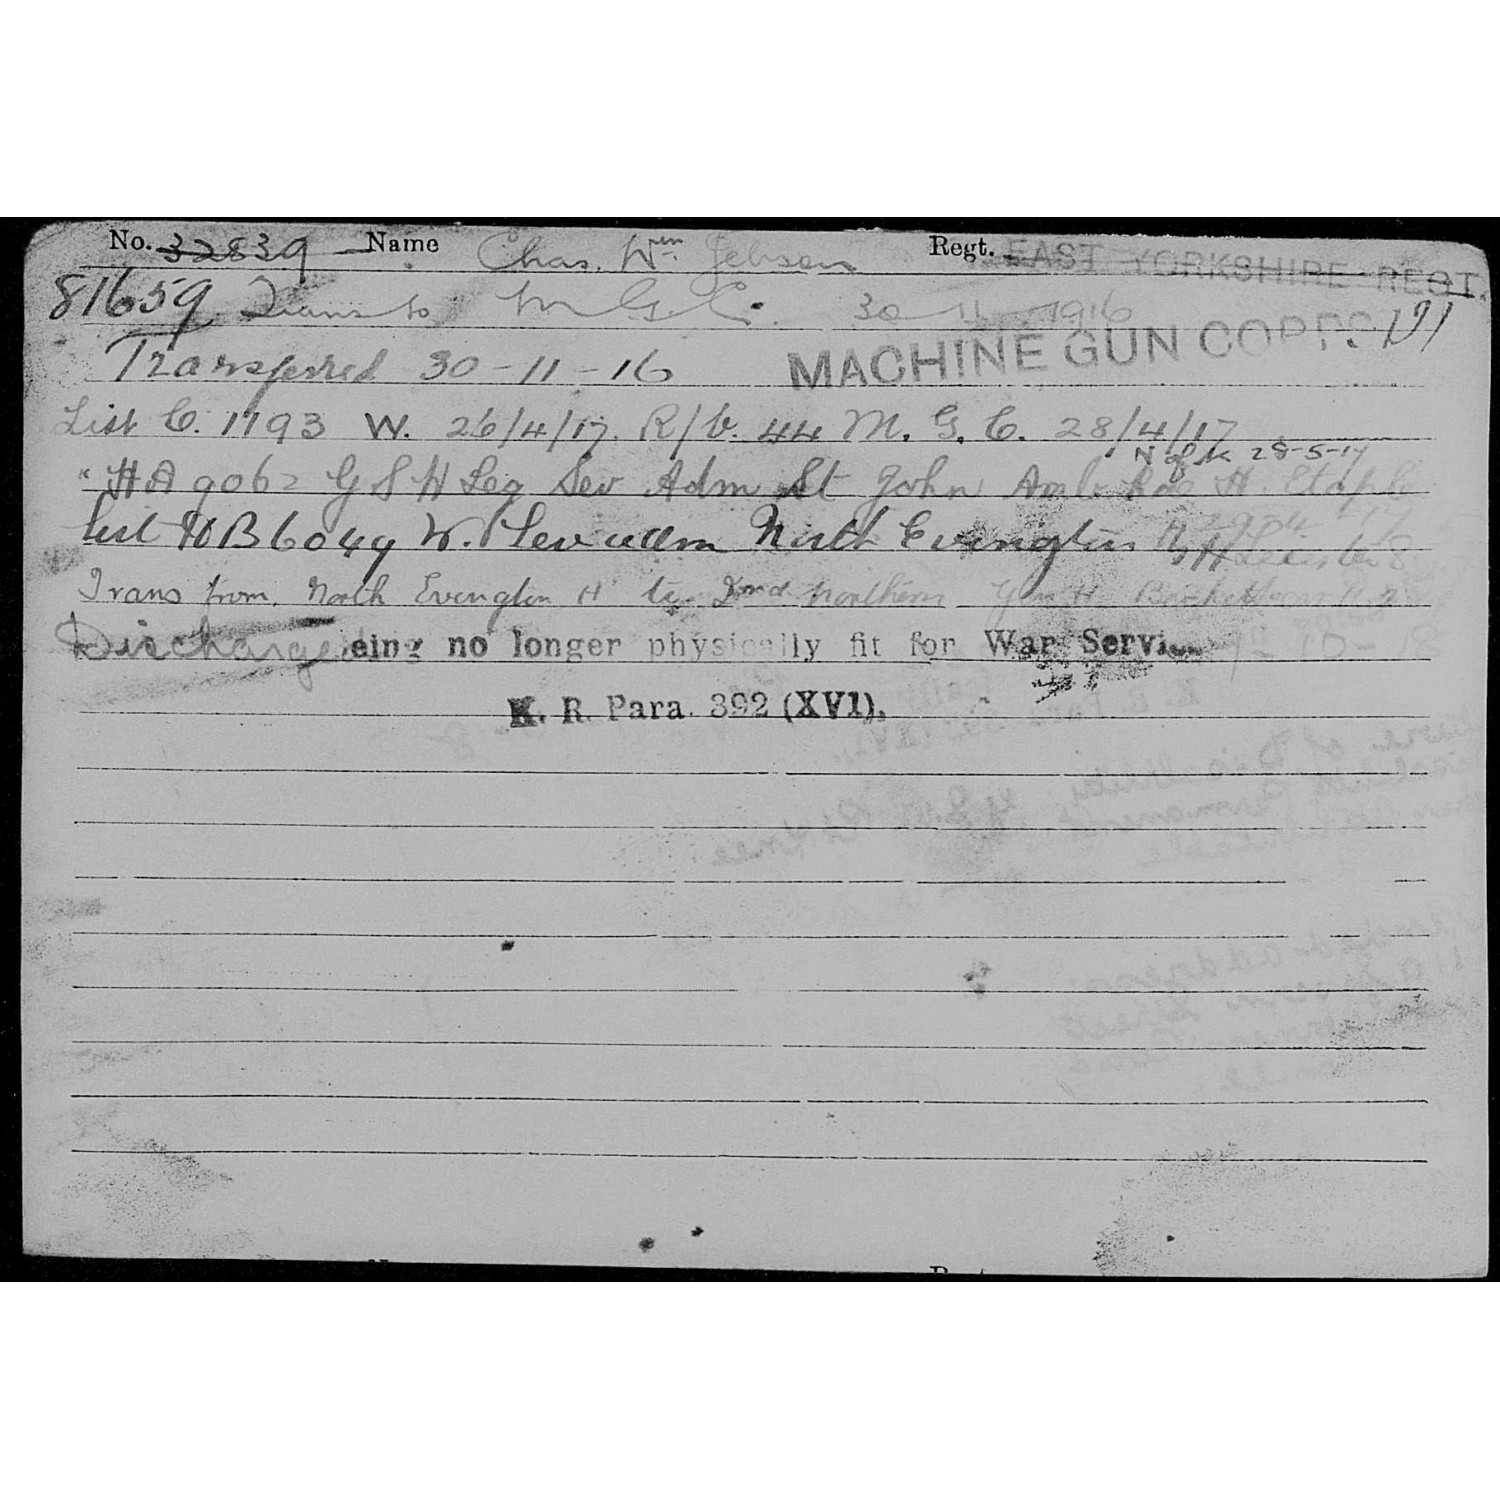 No. 32839 Name Chas. Wm. Jebsen Regt. EAST YORKSHIRE REGT.
81659 Trans to M. G. C. 30 11 1916
Transferred 30-11-16 MACHINE GUN CORPS.
List C. 1793 W. 26/4/17. R/V. 44 M. G. C. 28/4/17
N of K 28-5-17
" HA 9062 G S W Leg Sev Adm St John Amb. H. Etaples
List HB 6049 W. Sev adm North Evington
Trans from North Evington H to 2nd Northern Gen H.
Discharged eing no longer physically fit for War Service
K. R. Para. 392 (XVI),